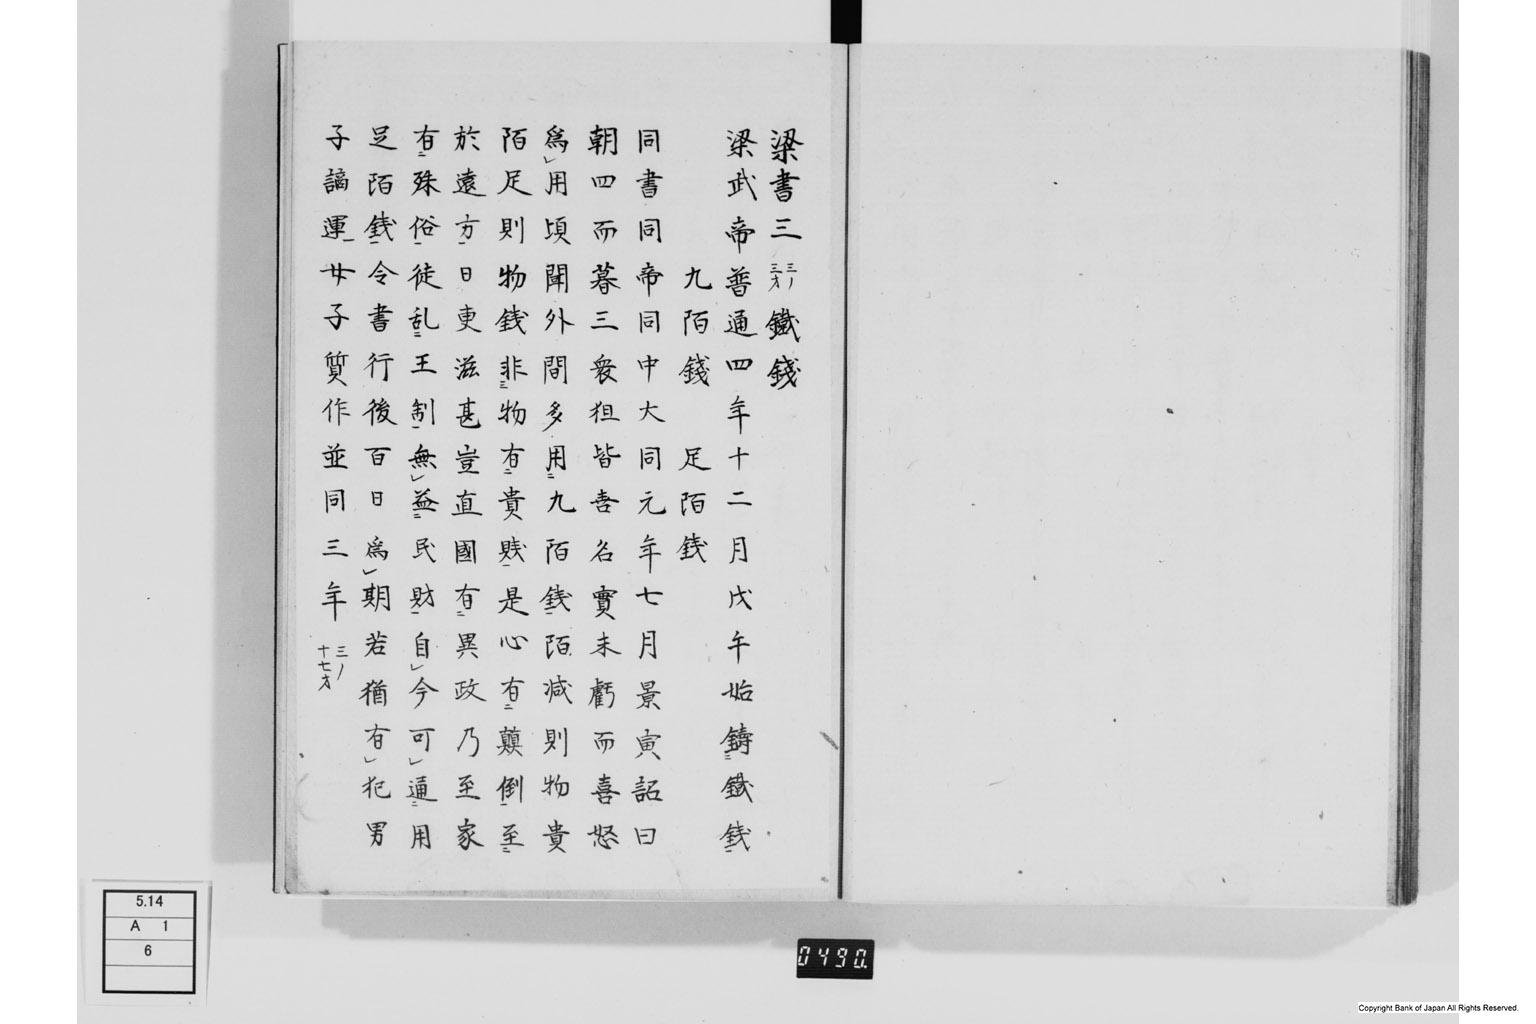 梁書三 三ノ三才 鐵錢
梁武帝普通四年十二月戊午始鋳鐵銭
九陌錢 足陌銭
同書同帝同中大同元年七月景寅詔曰
朝四而暮三衆狙皆喜名實未虧而喜怒
為用頃聞外間多用九陌銭陌減則物貴
陌足則物銭非物有貴賤是心有顛倒至
於遠方日更滋甚豈直國有異政乃至家
有殊俗徒乱王制無益民財自今可通用
足陌銭令書行後百日為期若猶有犯男
子謫運女子質作並同三年 三ノ十七才
5.14
A 1
6
0490
Copyright Bank of Japan All Rights Reserved.